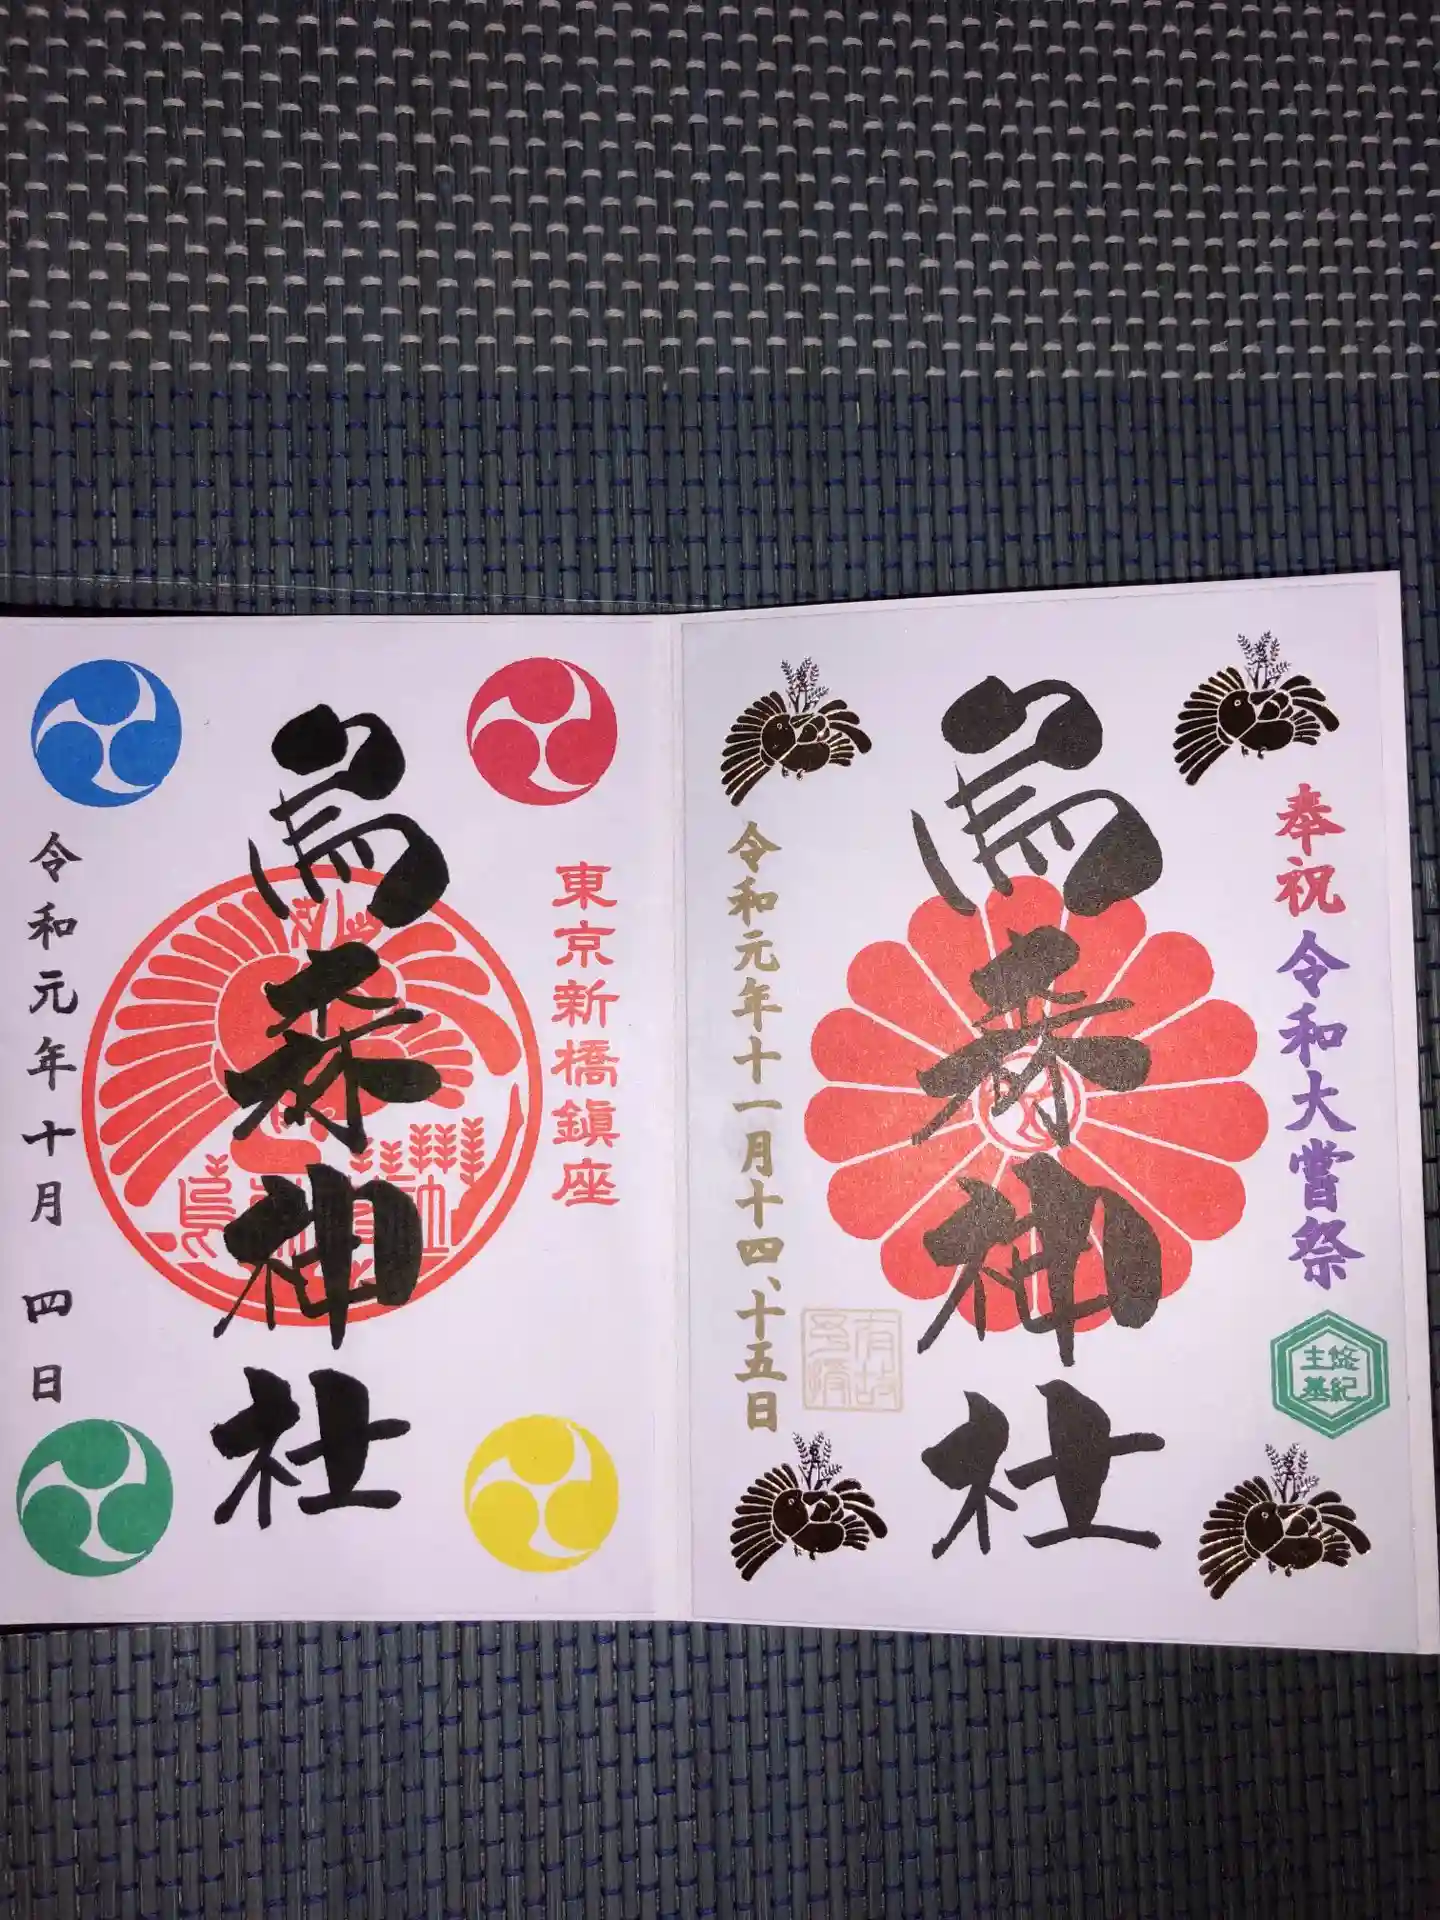 奉祝 令和大嘗祭
悠紀
主基
烏森神社
令和元年十一月十四、十五日
東京新橋鎮座
烏森神社
令和元年十月 四日